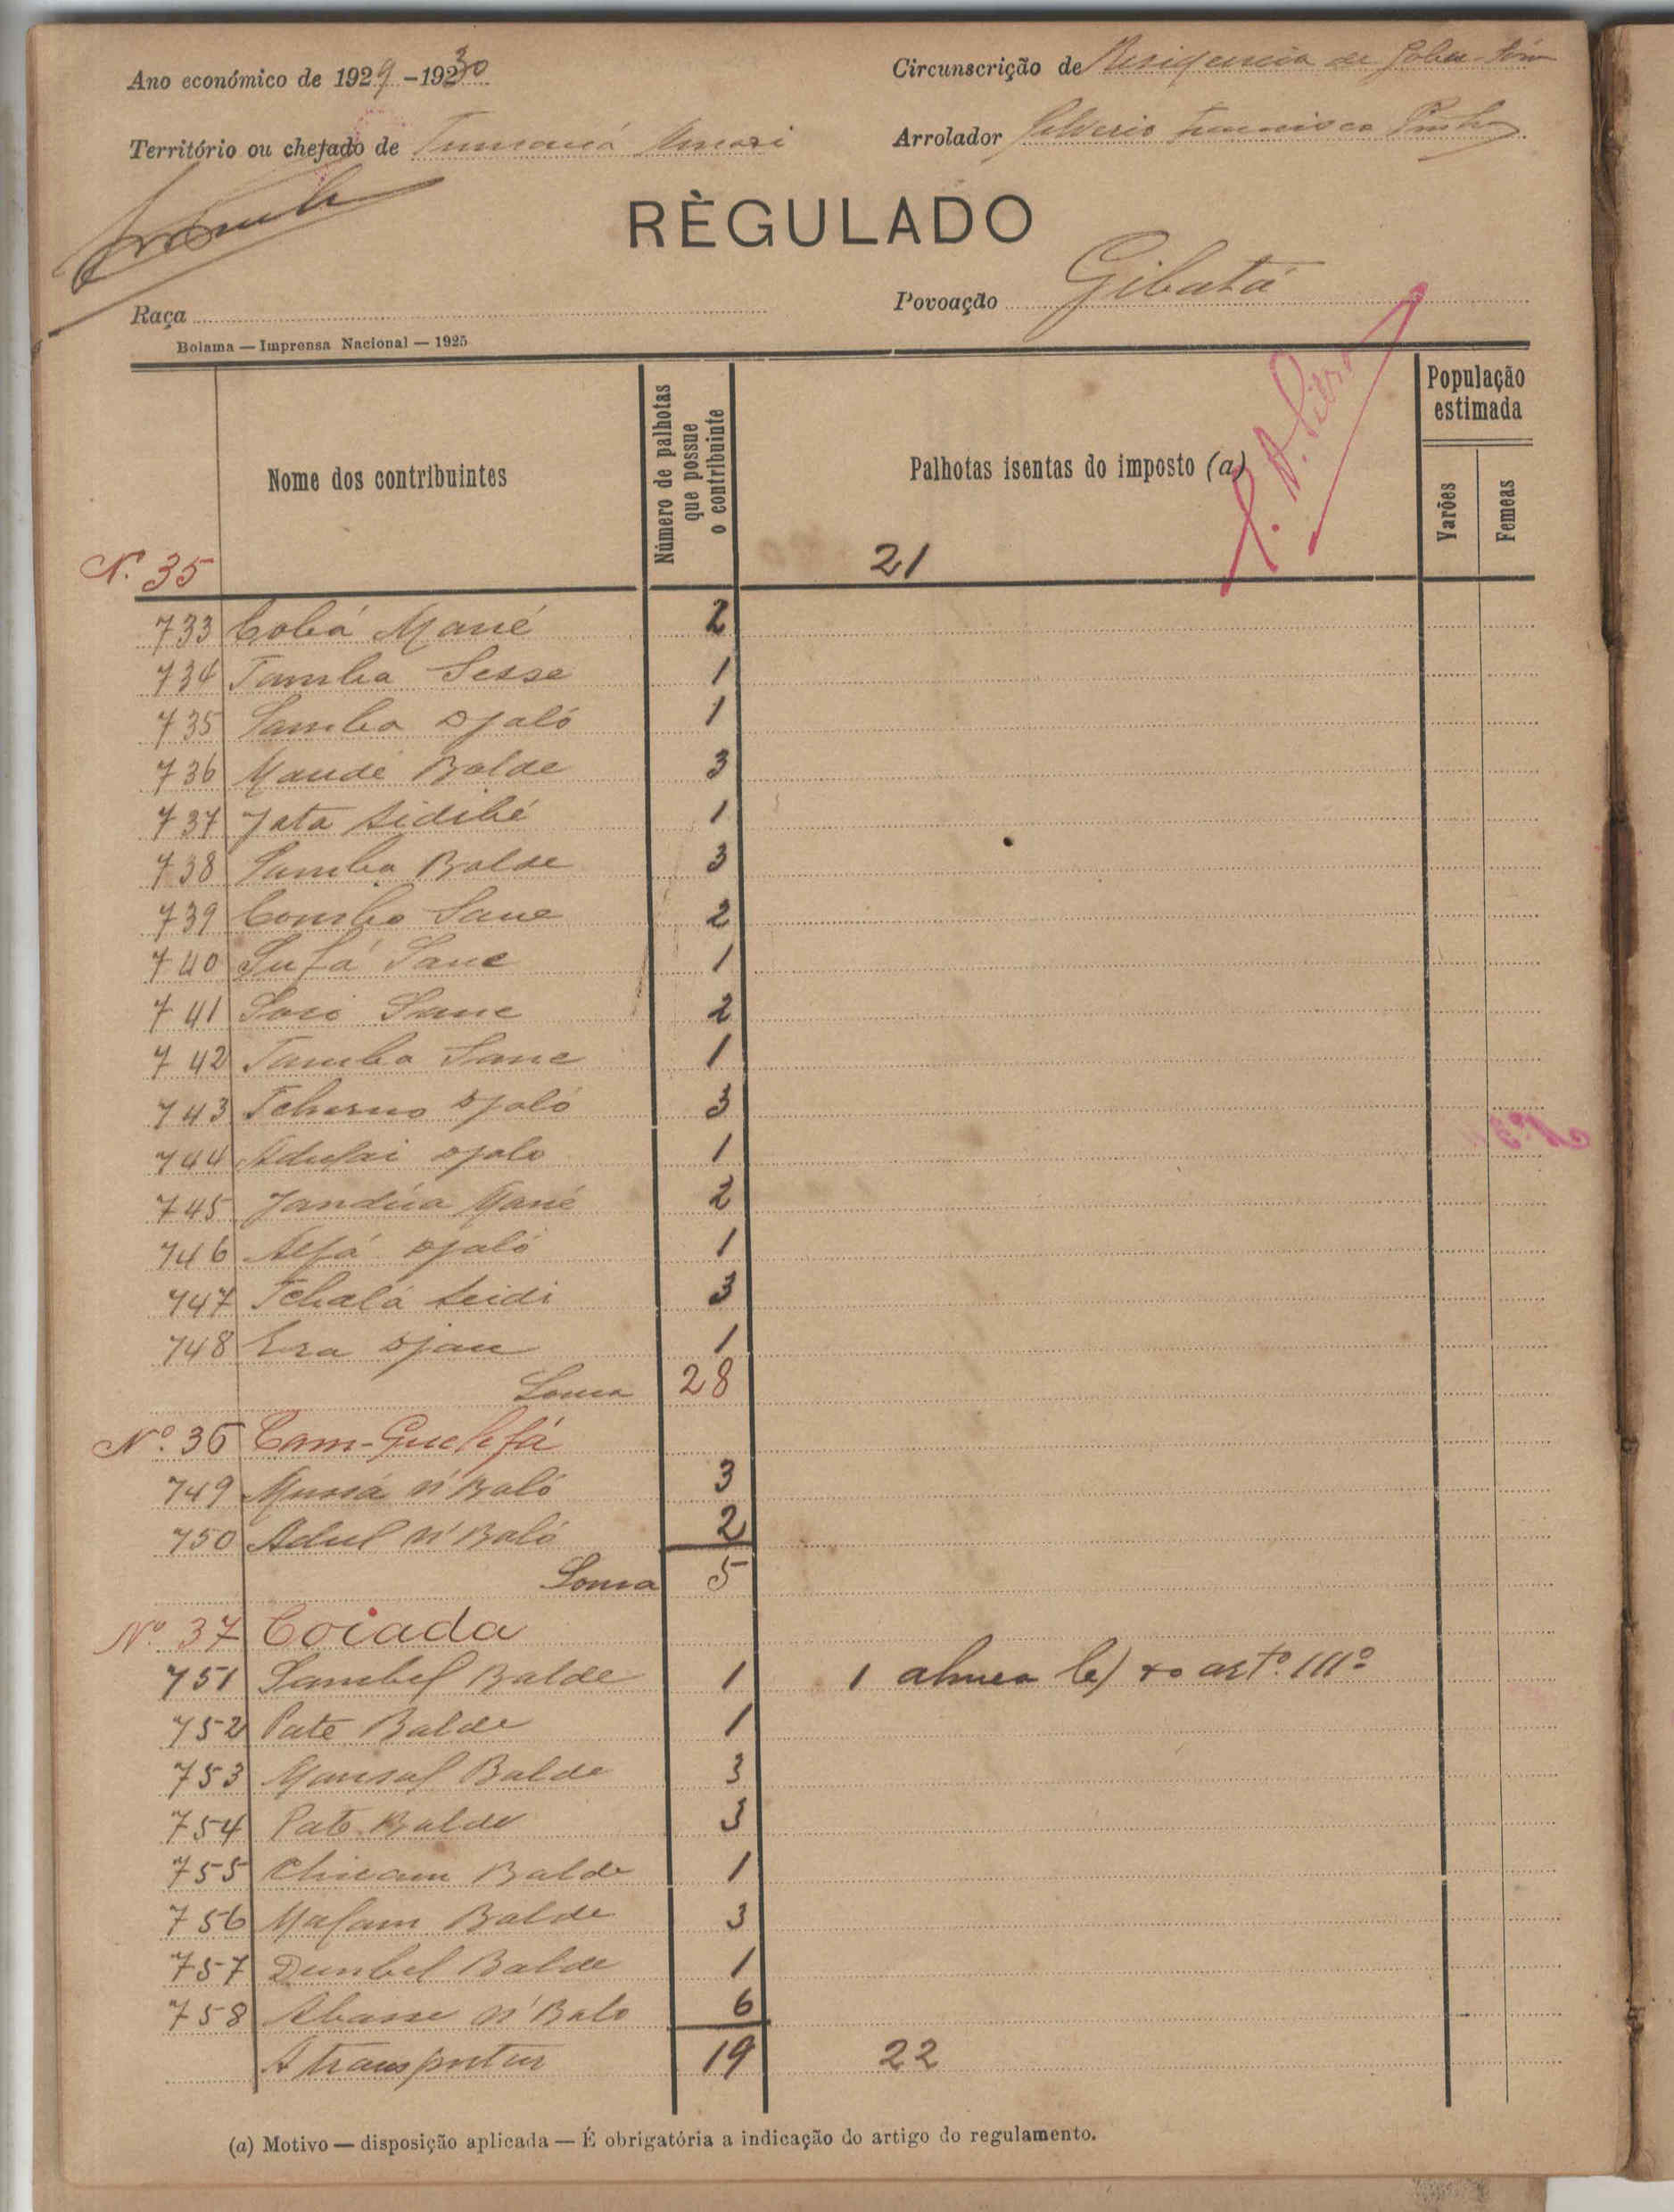 Ano económico de 1929-1930
Circunscrição de Residencia de
Território ou chefado de
Arrolador Silverio Francisco
RÈGULADO
Raça
Povoação Gibatá
Bolama — Imprensa Nacional — 1925
Nome dos contribuintes
Número de palhotas que possue o contribuinte
Palhotas isentas do imposto (a)
População estimada
Varões
Femeas
N. 35
21
733 Cobá Mané 2
734 Tamba Sesse 1
735 Samba Djaló 1
736 Maudé Balde 3
737 Jata Sidibé 1
738 Samba Balde 3
739 Combo Sane 2
740 Sufá Sane 1
741 Sane 2
742 Tamba Sane 1
743 Tcherno Djaló 3
744 Adulai Djalo 1
745 Mané 2
746 Alfá Djaló 1
747 Tchalá Seidi 3
748 Djau 1
Soma 28
Nº. 36 Cam-Guelifá
749 Mussá N'Baló 3
750 Adul N'Baló 2
Soma 5
Nº 37 Coiada
751 Sambel Balde 1 1 artº. 111º
752 Pate Balde 1
753 Balde 3
754 Pate Balde 3
755 Balde 1
756 Malam Balde 3
757 Dembel Balde 1
758 Abasse N'Balo 6
A transportar 19 22
(a) Motivo — disposição aplicada — É obrigatória a indicação do artigo do regulamento.